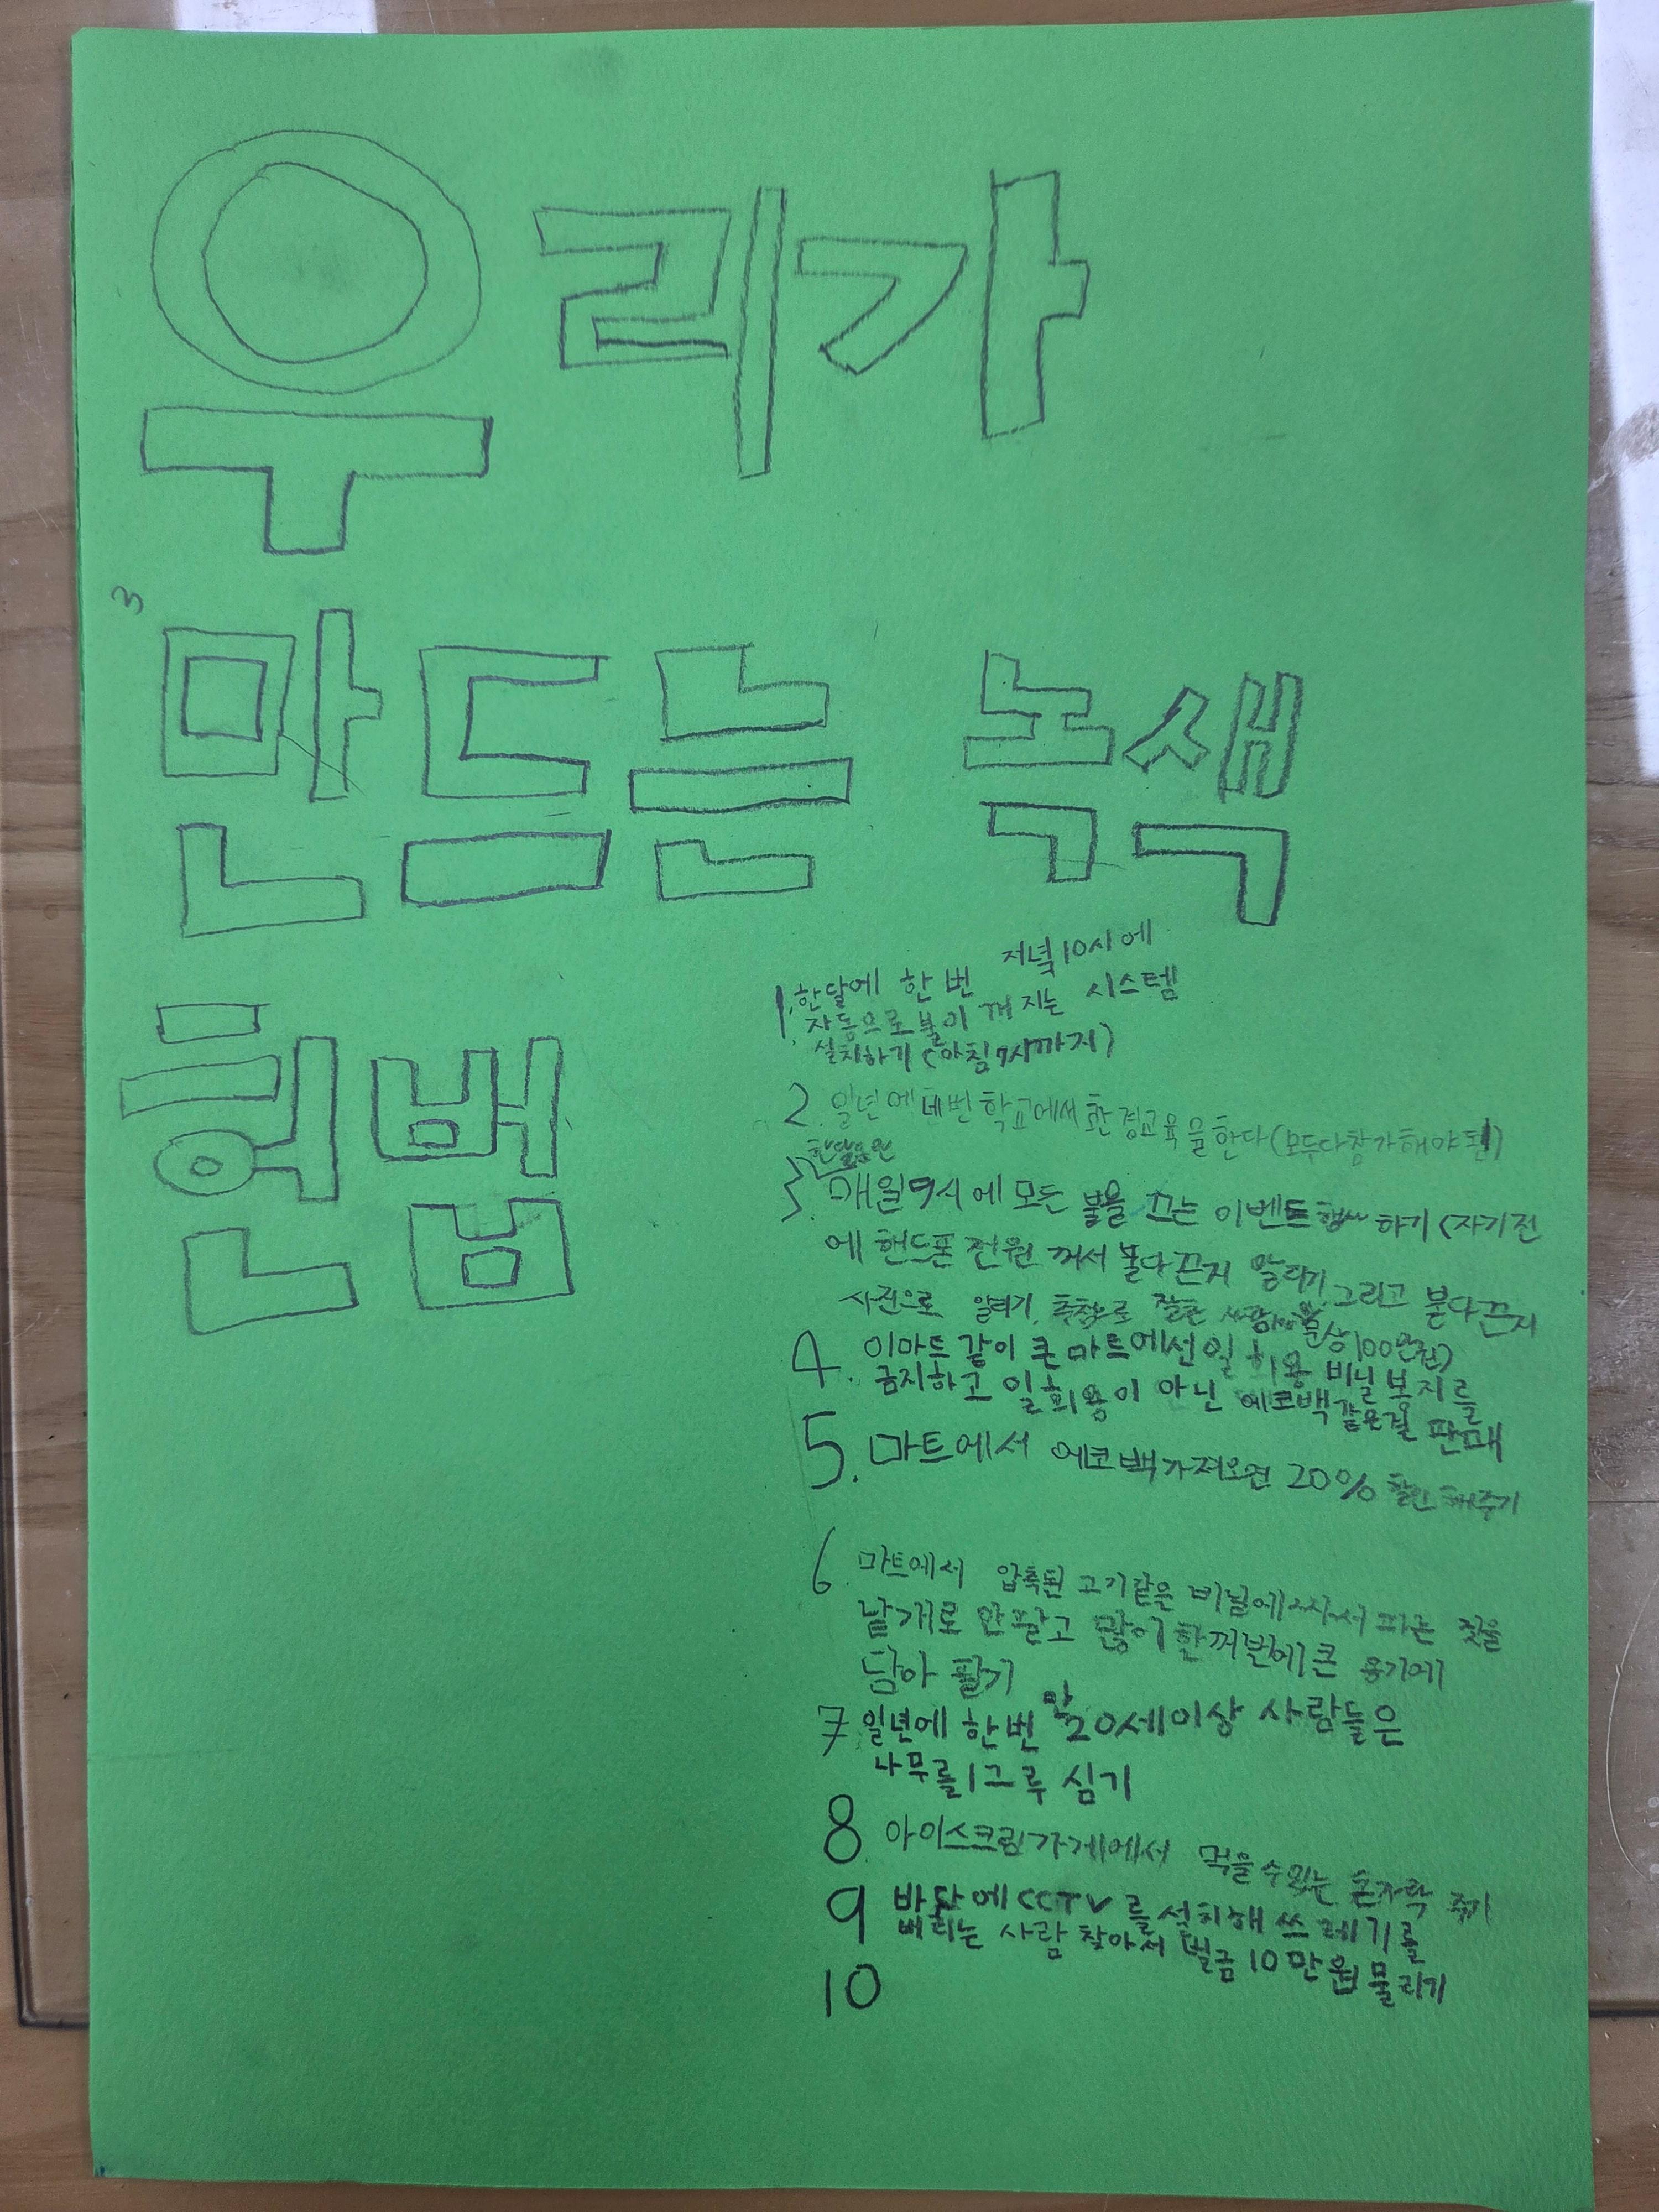 우리가
3
만드는 녹색
헌법
저녁10시에
1. 한달에 한 번
자동으로 불이 꺼지는 시스템
설치하기 (아침7시까지)
2. 일년에 네번 학교에서 환경교육을 한다 (모두다참가해야 됨)
한달동안
3. 매일9시에 모든 불을 끄는 이벤트 하기 (자기전
에 핸드폰 전원 꺼서 불다끈지 알리기, 그리고 불다끈지
사진으로 알리기, 추첨으로 잘한 상100만원)
4. 이마트 같이 큰 마트에선 일회용 비닐봉지를
금지하고 일회용이 아닌 에코백같은걸 판매
5. 마트에서 에코백가져오면 20% 할인해주기
6. 마트에서 압축된 고기같은 비닐에 싸서 파는 것을
낱개로 안팔고 많이 한꺼번에 큰 용기에
담아 팔기
만
7 일년에 한번 20세이상 사람들은
나무를 1그루 심기
8. 아이스크림가게에서 먹을수있는 숟가락 주기
9 바닥에 CCTV를 설치해 쓰레기를
버리는 사람 찾아서 벌금 10만원 물리기
10